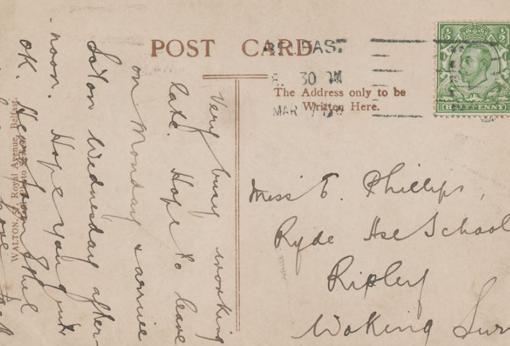 POST CARD
BELFAST
30 PM
MAR
The Address only to be
Written Here.
HALF PENNY
Very busy working
late. Hope to leave
on Monday & arrive
Luton Wednesday after-
noon. Hope you quite
OK. Hear from Ethel
love
WALTON, Royal Avenue, Belfast
Miss E. Phillips,
Ryde Hse School
Ripley
Woking Surr